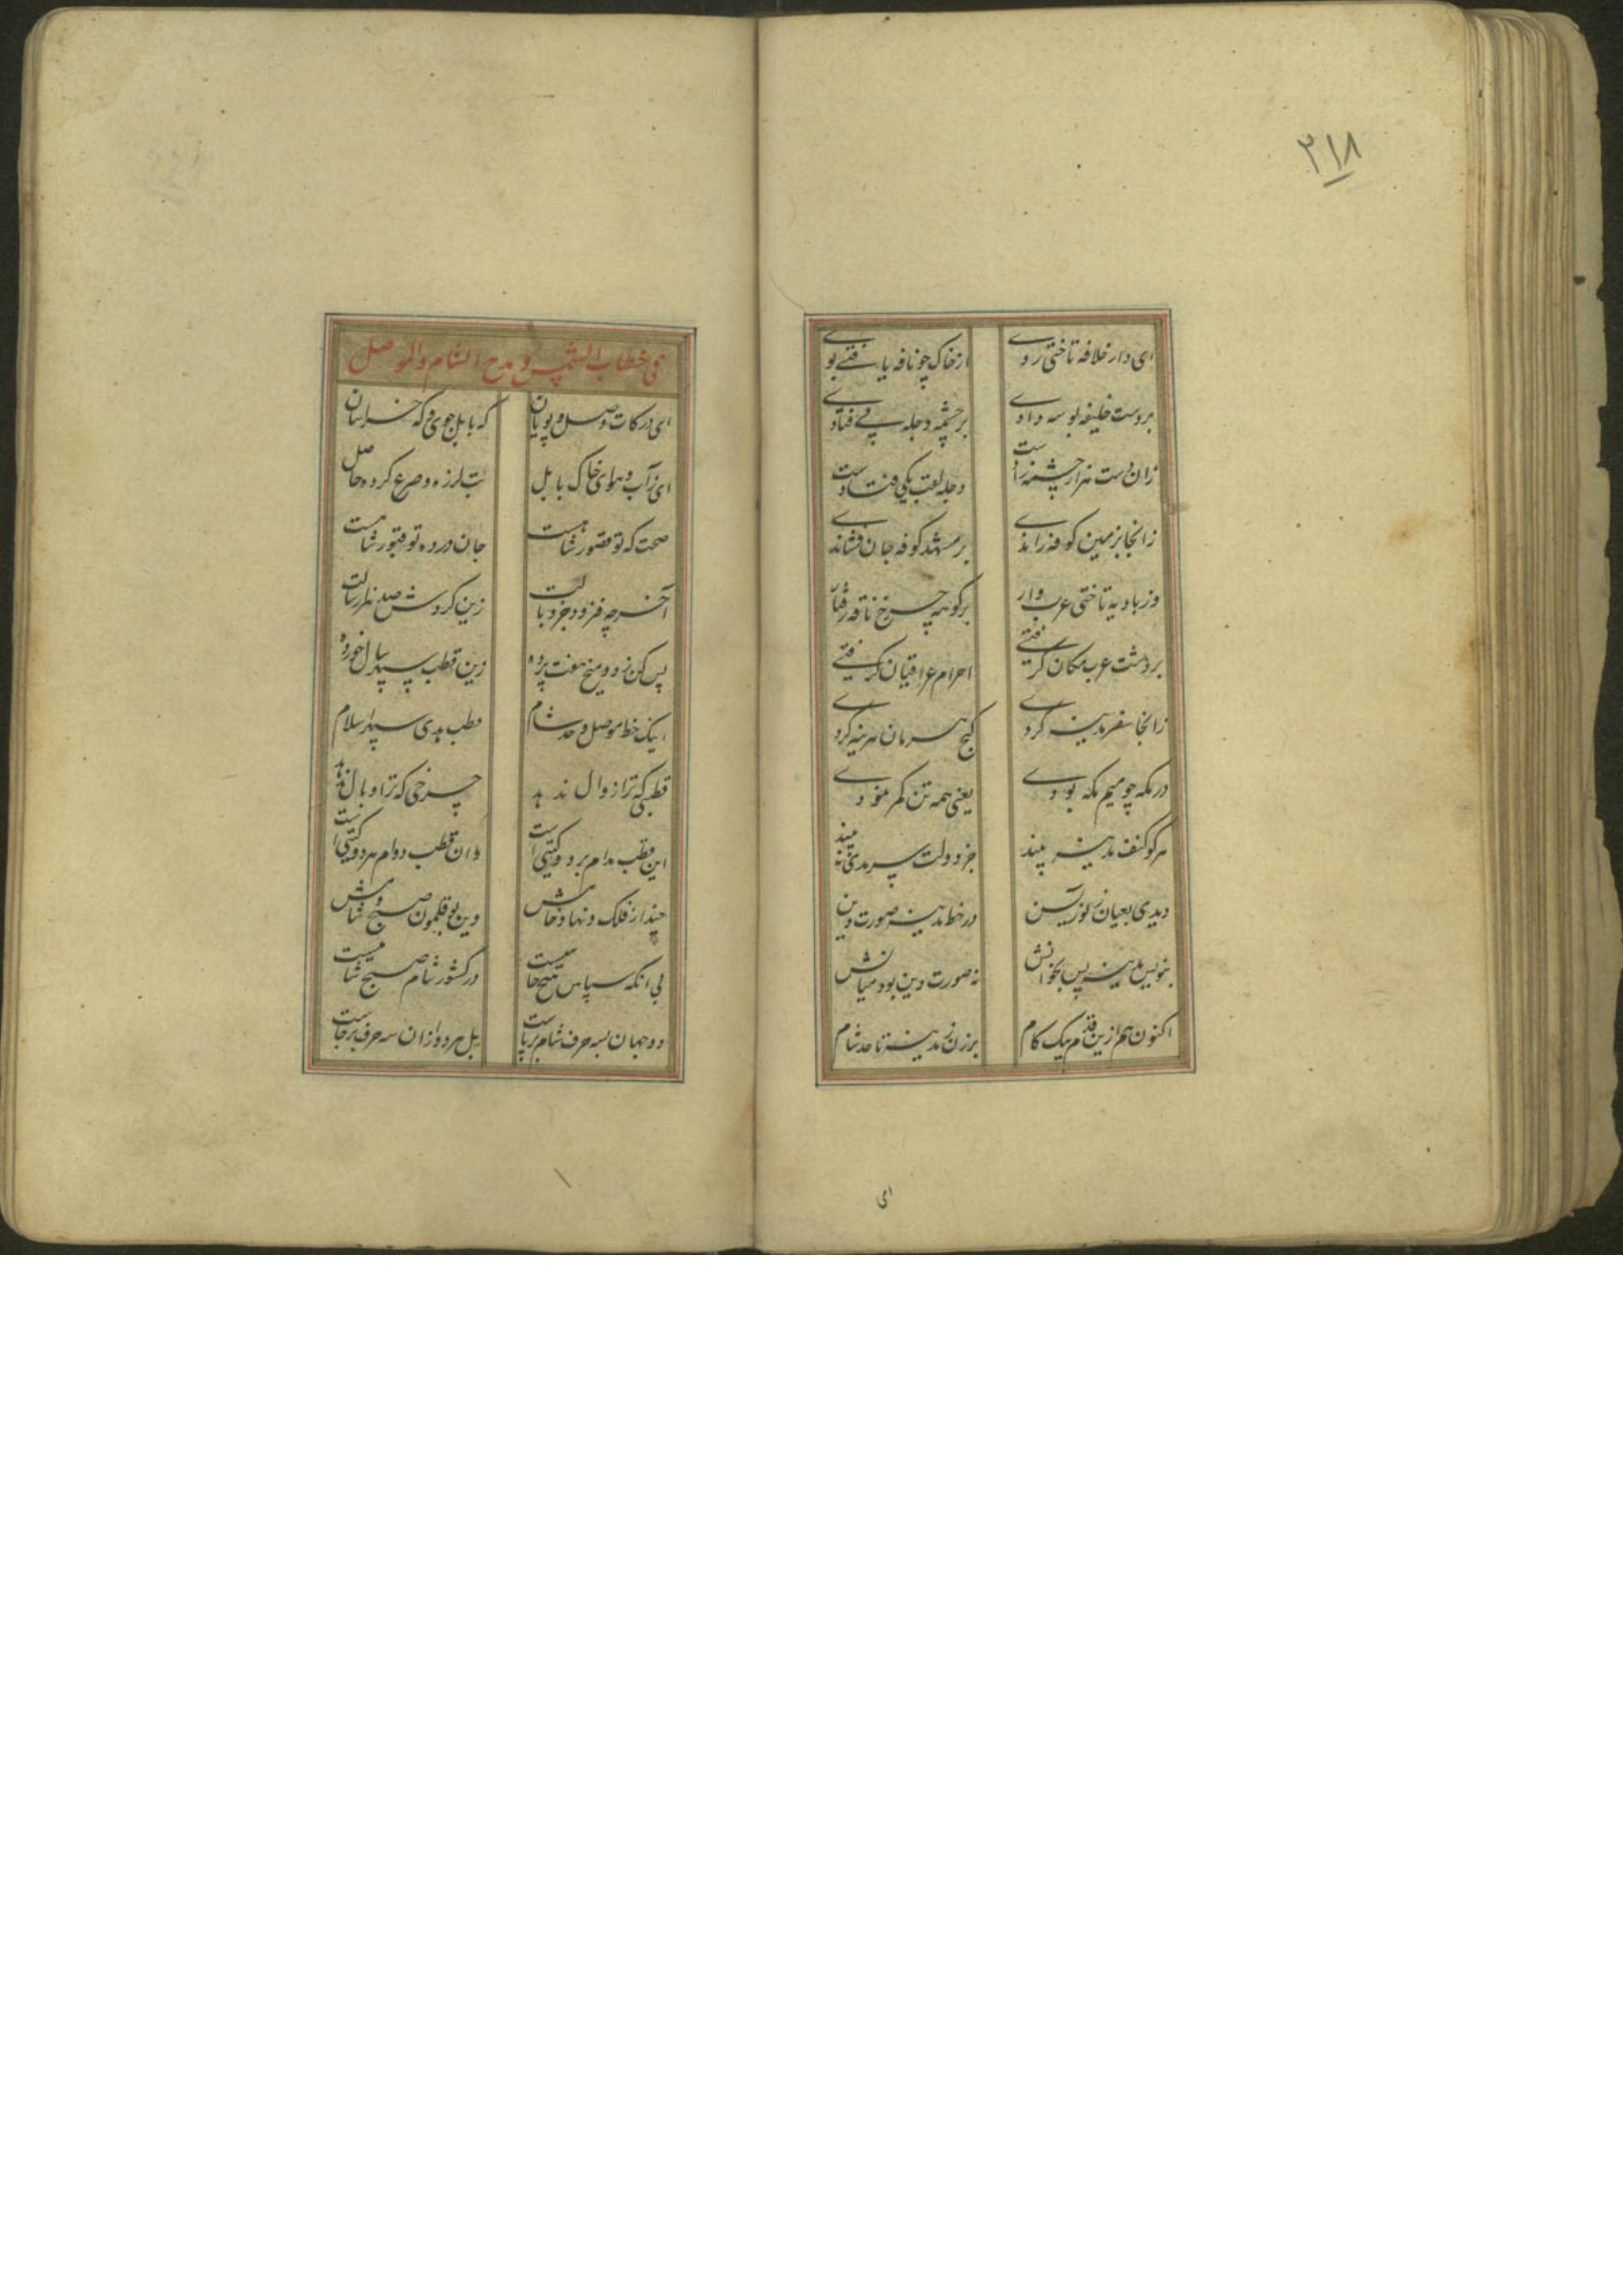 ۲۱۸
ای دار خلافه تاختی روی از خاک چو نافه یافتے بوی
بر دست خلیفه بوسه دادی بر چشمه دجله پی فتادی
زان دست هزار چشمه زادست دجله لقب یکی فتادست
زانجا بزمین کوفه راندی بر مشهد کوفه جان فشاندی
وز بادیه تاختی عرب وار بر کوهه چرخ ناقه رفتار
بر دشت عرب مکان گرفتی احرام عراقیان گرفتی
زانجا سفر مدینه کردی گنج هرمان هزینه کردی
در مکه چو میم مکه بودی یعنی همه تن کمر نمودی
هر کو کنف مدینه بیند جز دولت سرمدی نه بیند
دیدی بعیان ز لوز آسن در خط مدینه صورت دین
بنویس مدینه پس بخوانش نه صورت دین بود میانش
اکنون هم ازین قدم بیک کام برزن ز مدینه تا حد شام
ای
فی خطاب الشمس و مدح الشام والموصل
ای در کات وصل پویان که بابل جوی و که خراسان
ای ز آب و هوای خاک بابل تب لرزه و صرع کرده حاصل
صحت که تو قصور شامست جان درده تو قبور شامست
آخر چه فزود جز وبالت زین کردش صد هزار سالت
پس کن ز دو میخ هفت پرده زین قطب سپهر سال خورده
اینک خط موصل و حد شام قطب بدی سپهر اسلام
قطبی که ترا زوال ندهد چرخی که ترا وبال ندهد
این قطب مدام بر دو گیتی است وان قطب دوام هر دو گیتی است
چند از فلک و نهاد خامش وین بوقلمون صبح و شامش
بی آنکه سپاس هیچ خامیست در کشور شام صبح شامیست
دو جهان بسه حرف شام برپاست بل هر دو ازان سه حرف برخاست